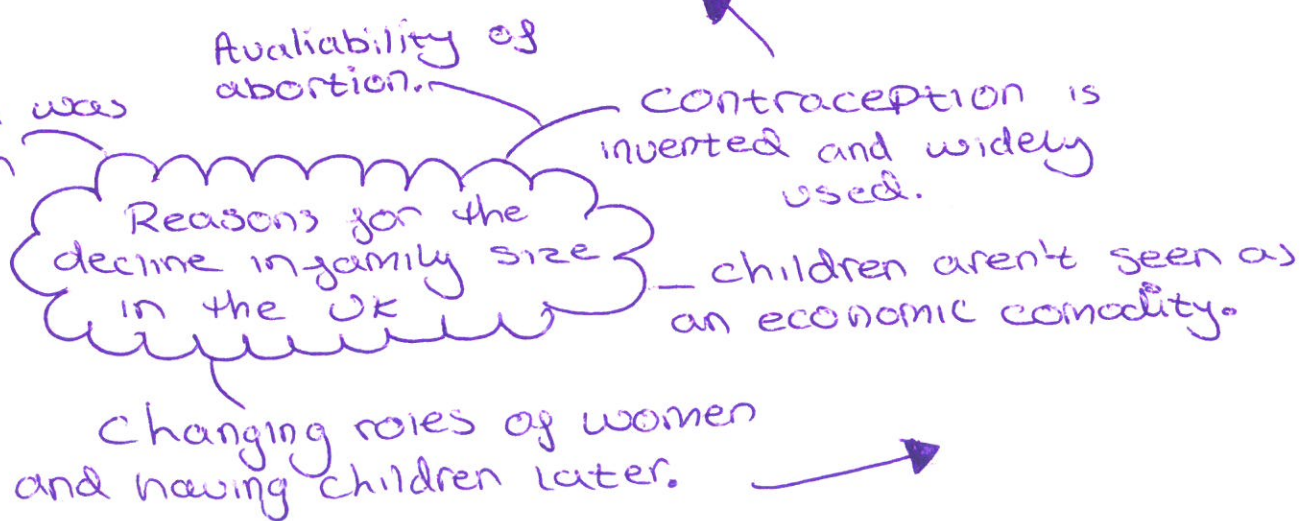 Avaliability of
abortion.
was
contraception is
invented and widely
used.
Reasons for the
decline in family size
in the UK
children aren't seen as
an economic comodity.
Changing roles of women
and having children later.